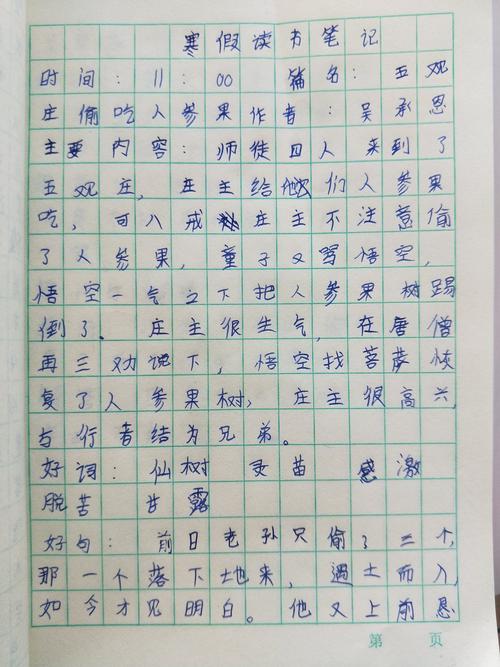 寒假读书笔记
时间：11：00 篇名：五观
庄偷吃人参果作者：吴承恩
主要内容：师徒四人来到了
五观庄，庄主给他们人参果
吃，可八戒 庄主不注意偷
了人参果，童子又骂悟空，
悟空一气之下把人参果树踢
倒了．庄主很生气，在唐僧
再三劝说下，悟空找菩萨恢
复了人参果树，庄主很高兴，
与行者结为兄弟。
好词：仙树 灵苗 感激
脱苦 甘露
好句：前日老孙只偷了三个，
那一个落下土地来，遇土而入，
如今才见明白。他又上前恳
第 页